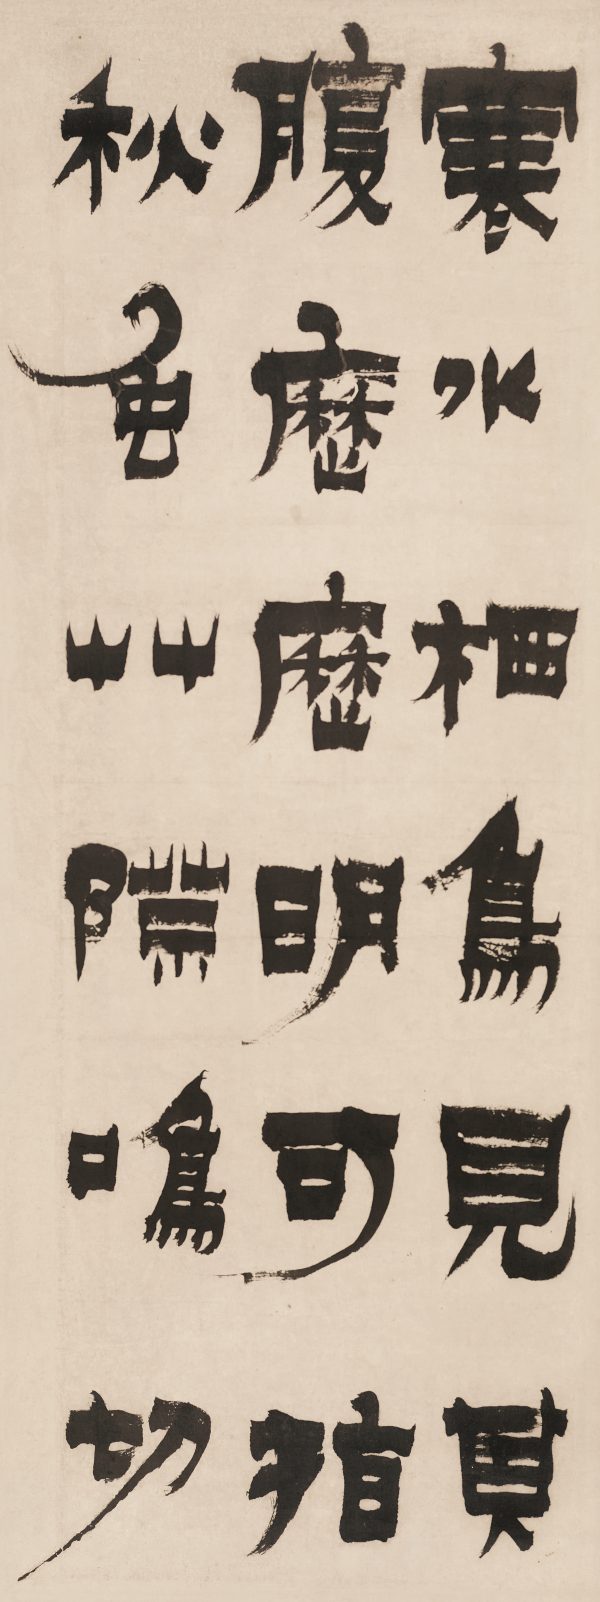 寒水栖鳥見其
腹歷歷明可指
秋色艸際鳴切